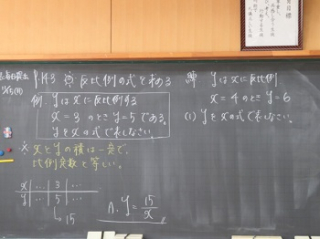 P.143 ⑤ 反比例の式を求める
例 yはxに反比例する
x=3のとき y=5である。
yをxの式で表しなさい。
※ xとyの積は一定で、
比例定数と等しい。
x … 3 …
y … 5 …
↳ 15
A. y=15/x
yはxに反比例
x=4のとき y=6
(1) yをxの式で表しなさい。